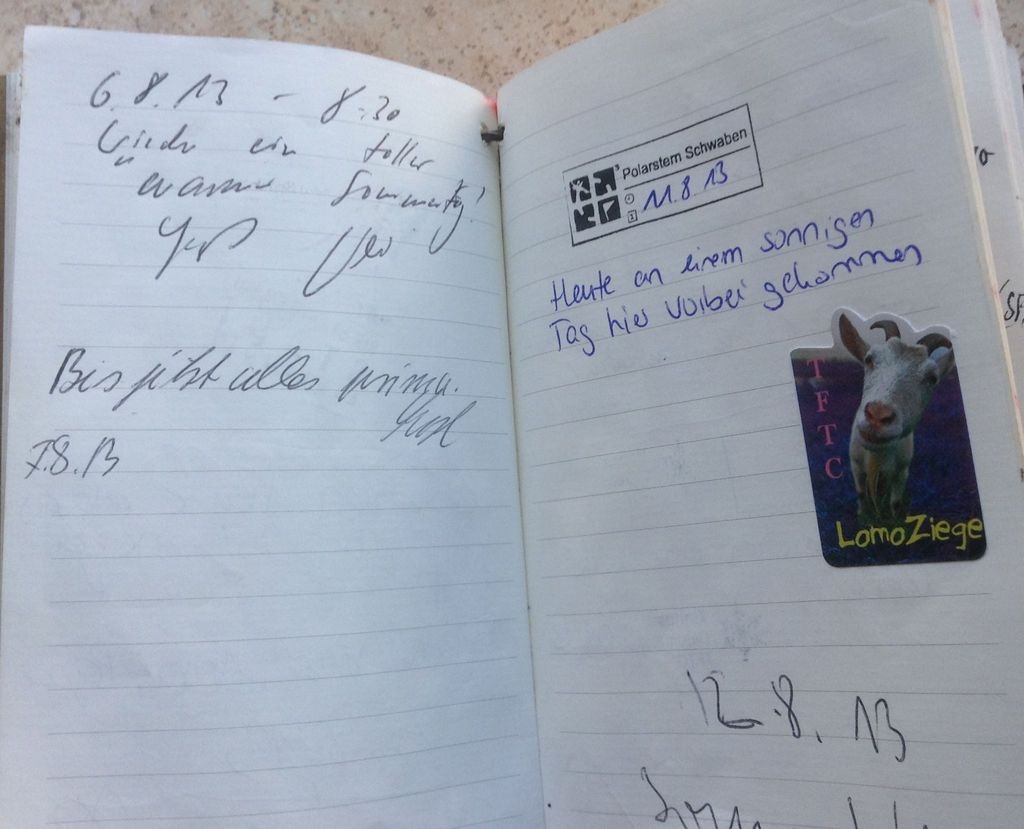 6.8.13 - 8:30
Wieder ein toller
warmer Sommertag!
Bis jetzt alles prima.
7.8.13
Polarstern Schwaben
11.8.13
Heute an einem sonnigen
Tag hier vorbei gekommen
TFTC
LomoZiege
12.8.13